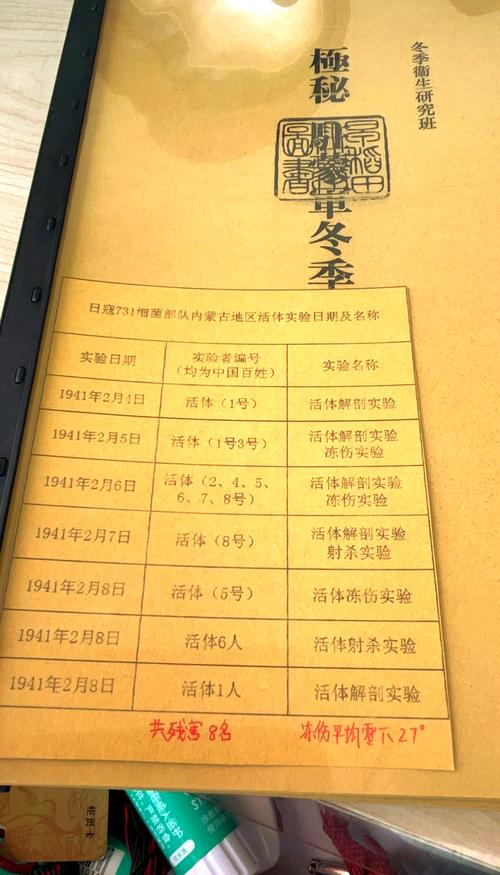 冬季衞生研究班
極秘
駐蒙軍冬季
日寇731细菌部队内蒙古地区活体实验日期及名称
实验日期 实验者编号 实验名称
（均为中国百姓）
1941年2月4日 活体（1号） 活体解剖实验
1941年2月5日 活体（1号3号） 活体解剖实验
冻伤实验
1941年2月6日 活体（2、4、5、 活体解剖实验
6、7、8号） 冻伤实验
1941年2月7日 活体（8号） 活体解剖实验
射杀实验
1941年2月8日 活体（5号） 活体冻伤实验
1941年2月8日 活体6人 活体射杀实验
1941年2月8日 活体1人 活体解剖实验
共残害8名 冻伤平均零下27°